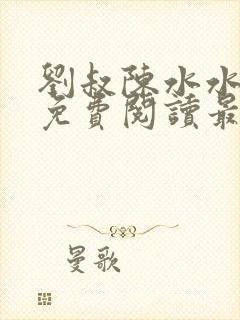 劉叔陳水水
免費閱讀最
曼歌